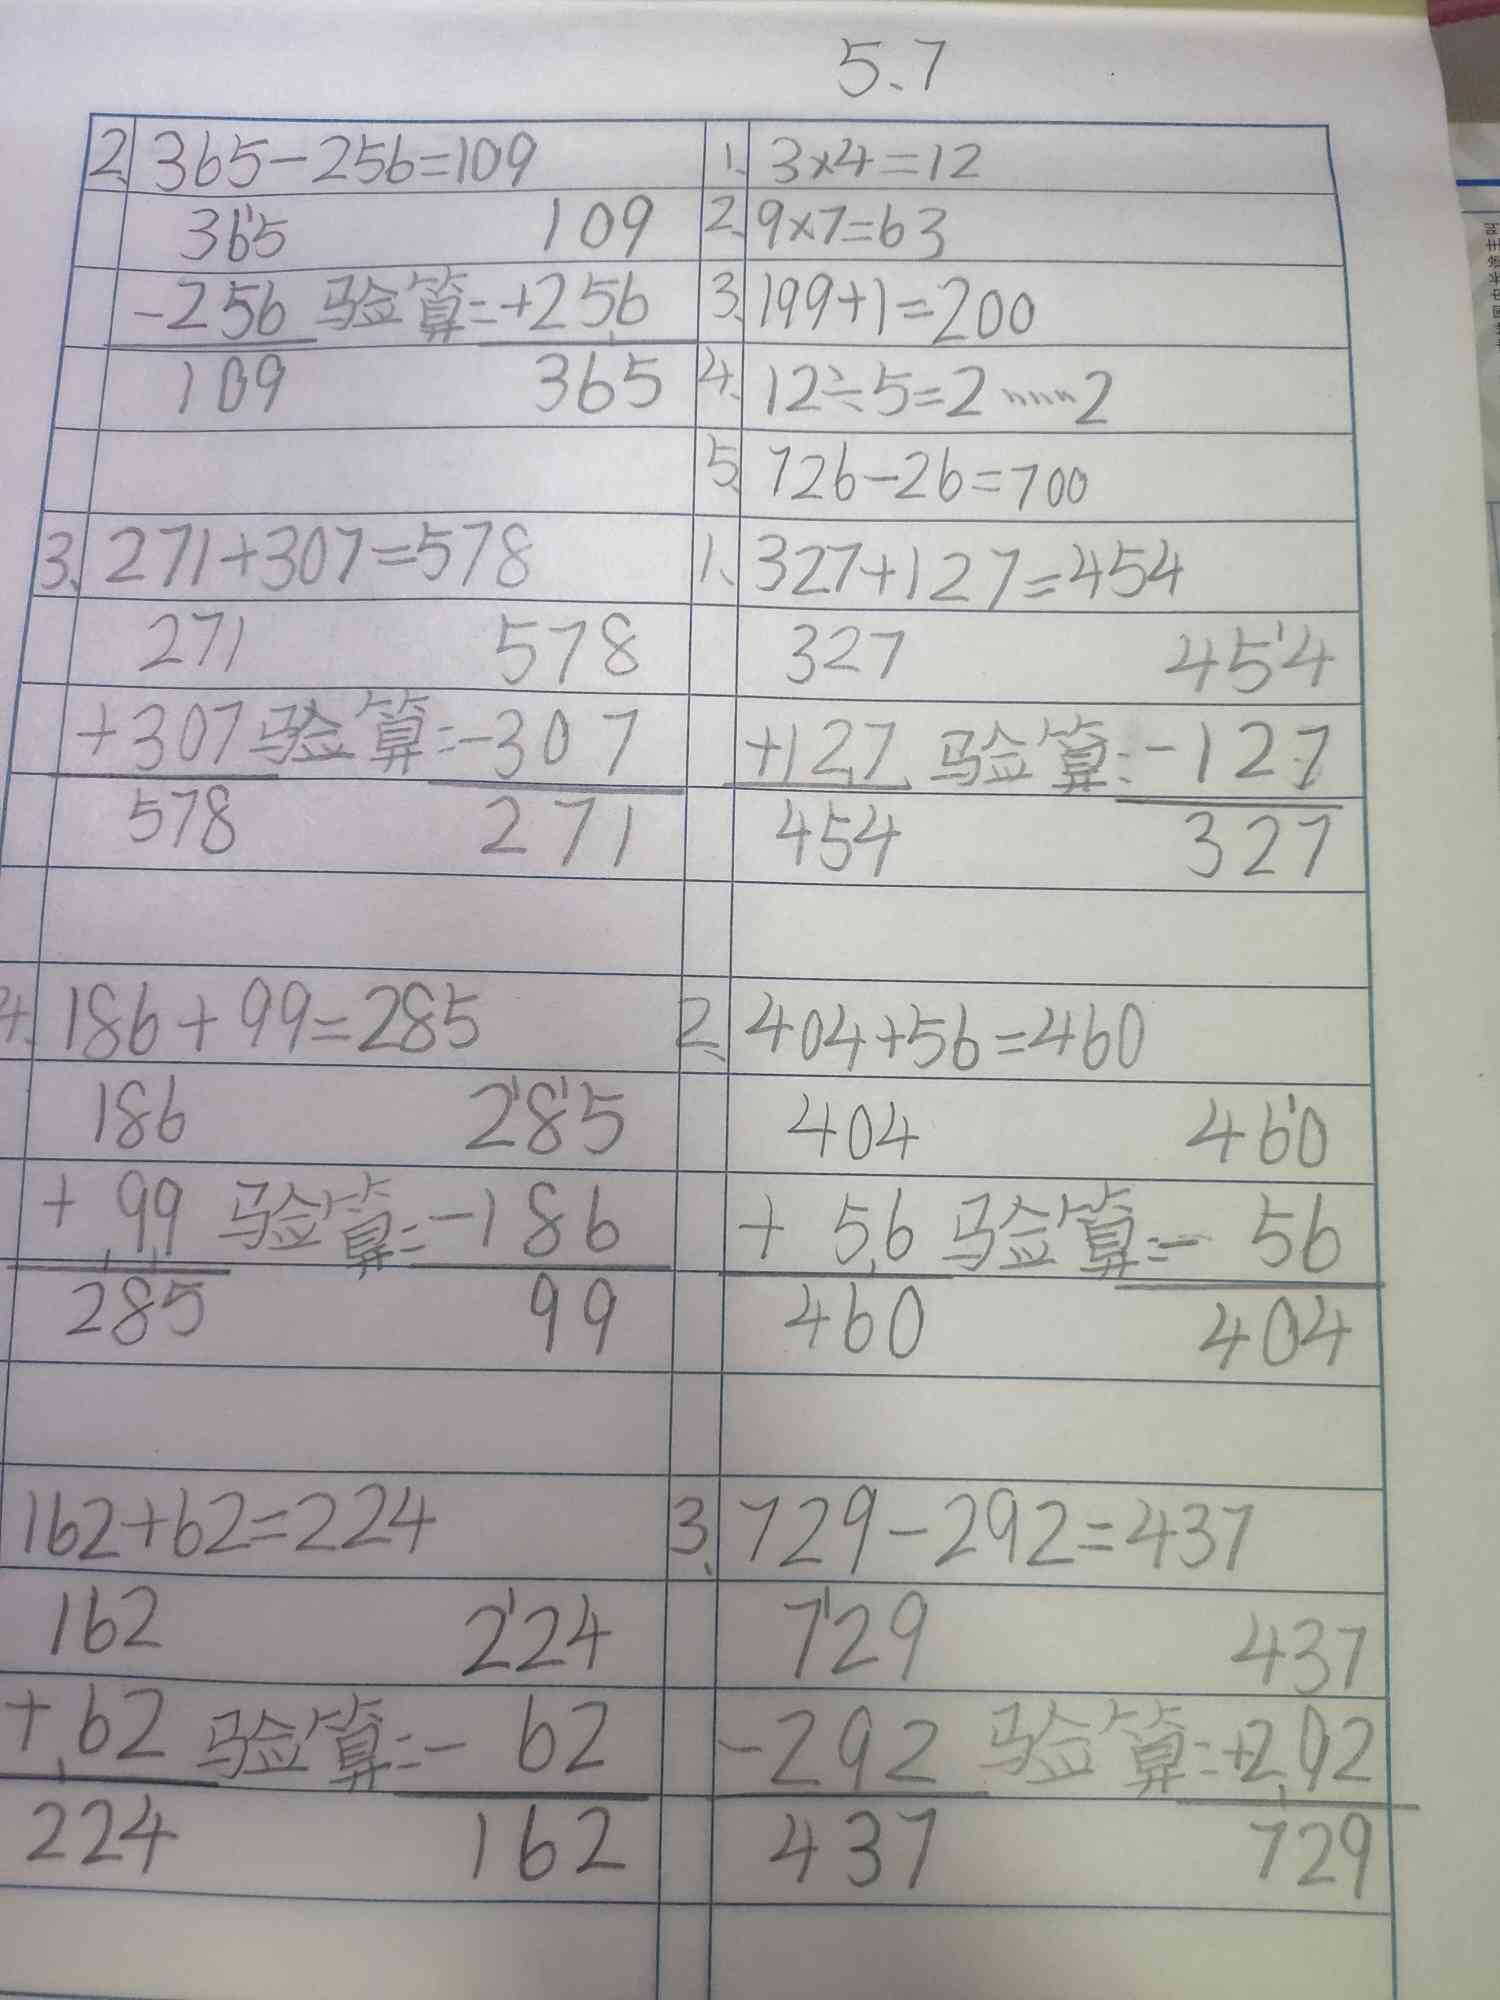 5、7
2、365-256=109
365 109
-256 验算:+256
109 365
3、271+307=578
271 578
+307 验算:-307
578 271
4、186+99=285
186 285
+ 99 验算:-186
285 99
162+62=224
162 224
+ 62 验算:- 62
224 162
1、3×4=12
2、9×7=63
3、199+1=200
4、12÷5=2……2
5、726-26=700
1、327+127=454
327 454
+127 验算:-127
454 327
2、404+56=460
404 460
+ 56 验算:- 56
460 404
3、729-292=437
729 437
-292 验算:+292
437 729